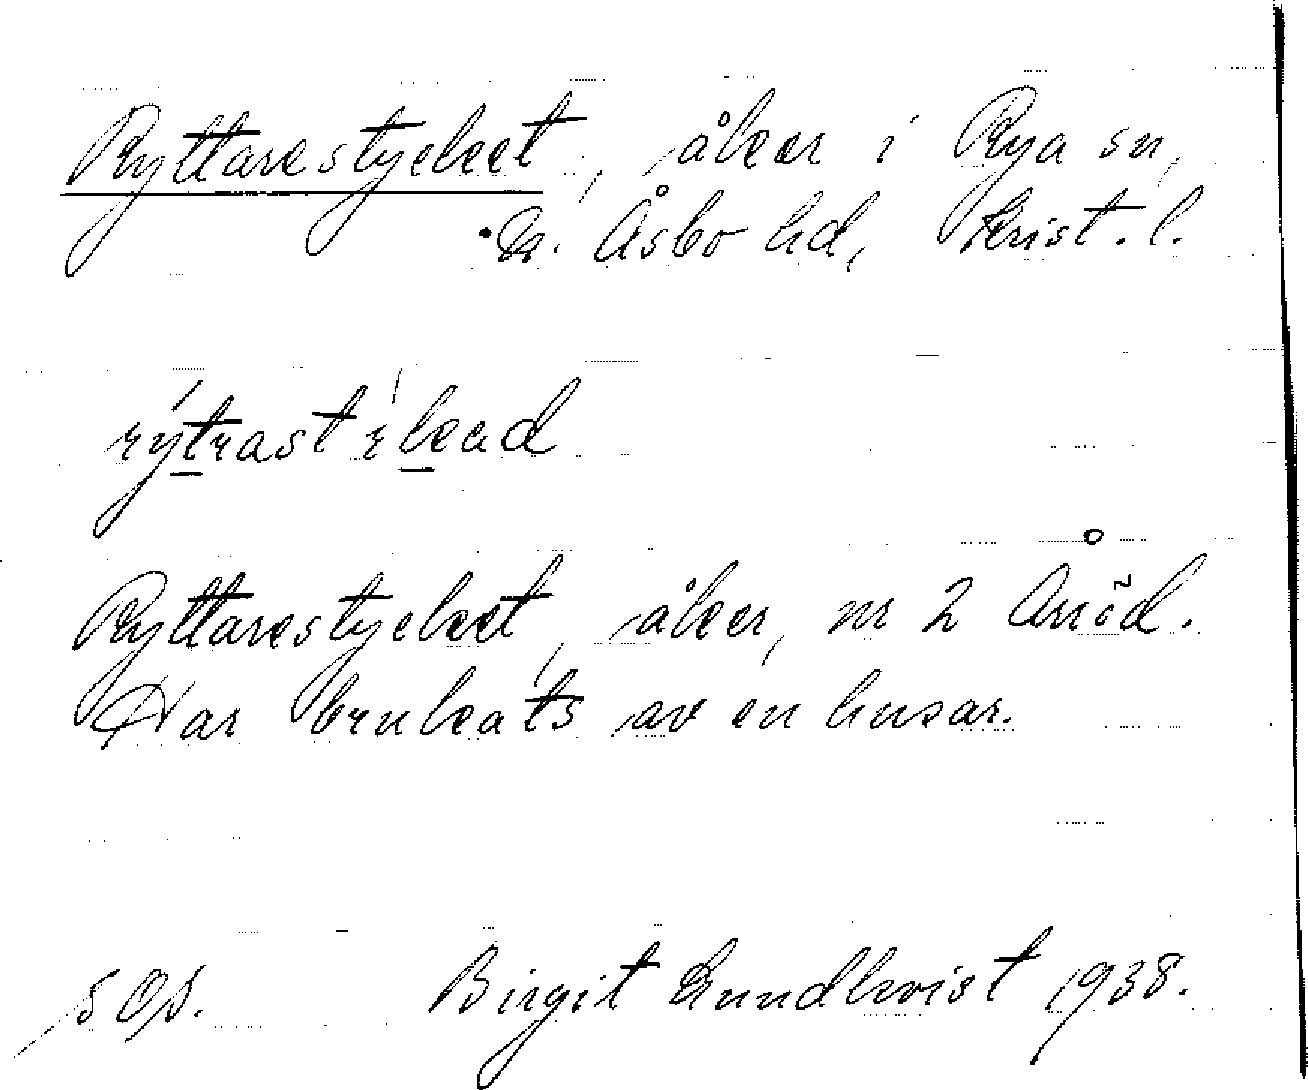 Ryttarestycket, åker i Rya sn,
N. Åsbo hd, Krist. l.
Ryttarestycket, åker, nr 2 Årröd.
Har brukats av en husar.
Birgit Lundkvist 1938.